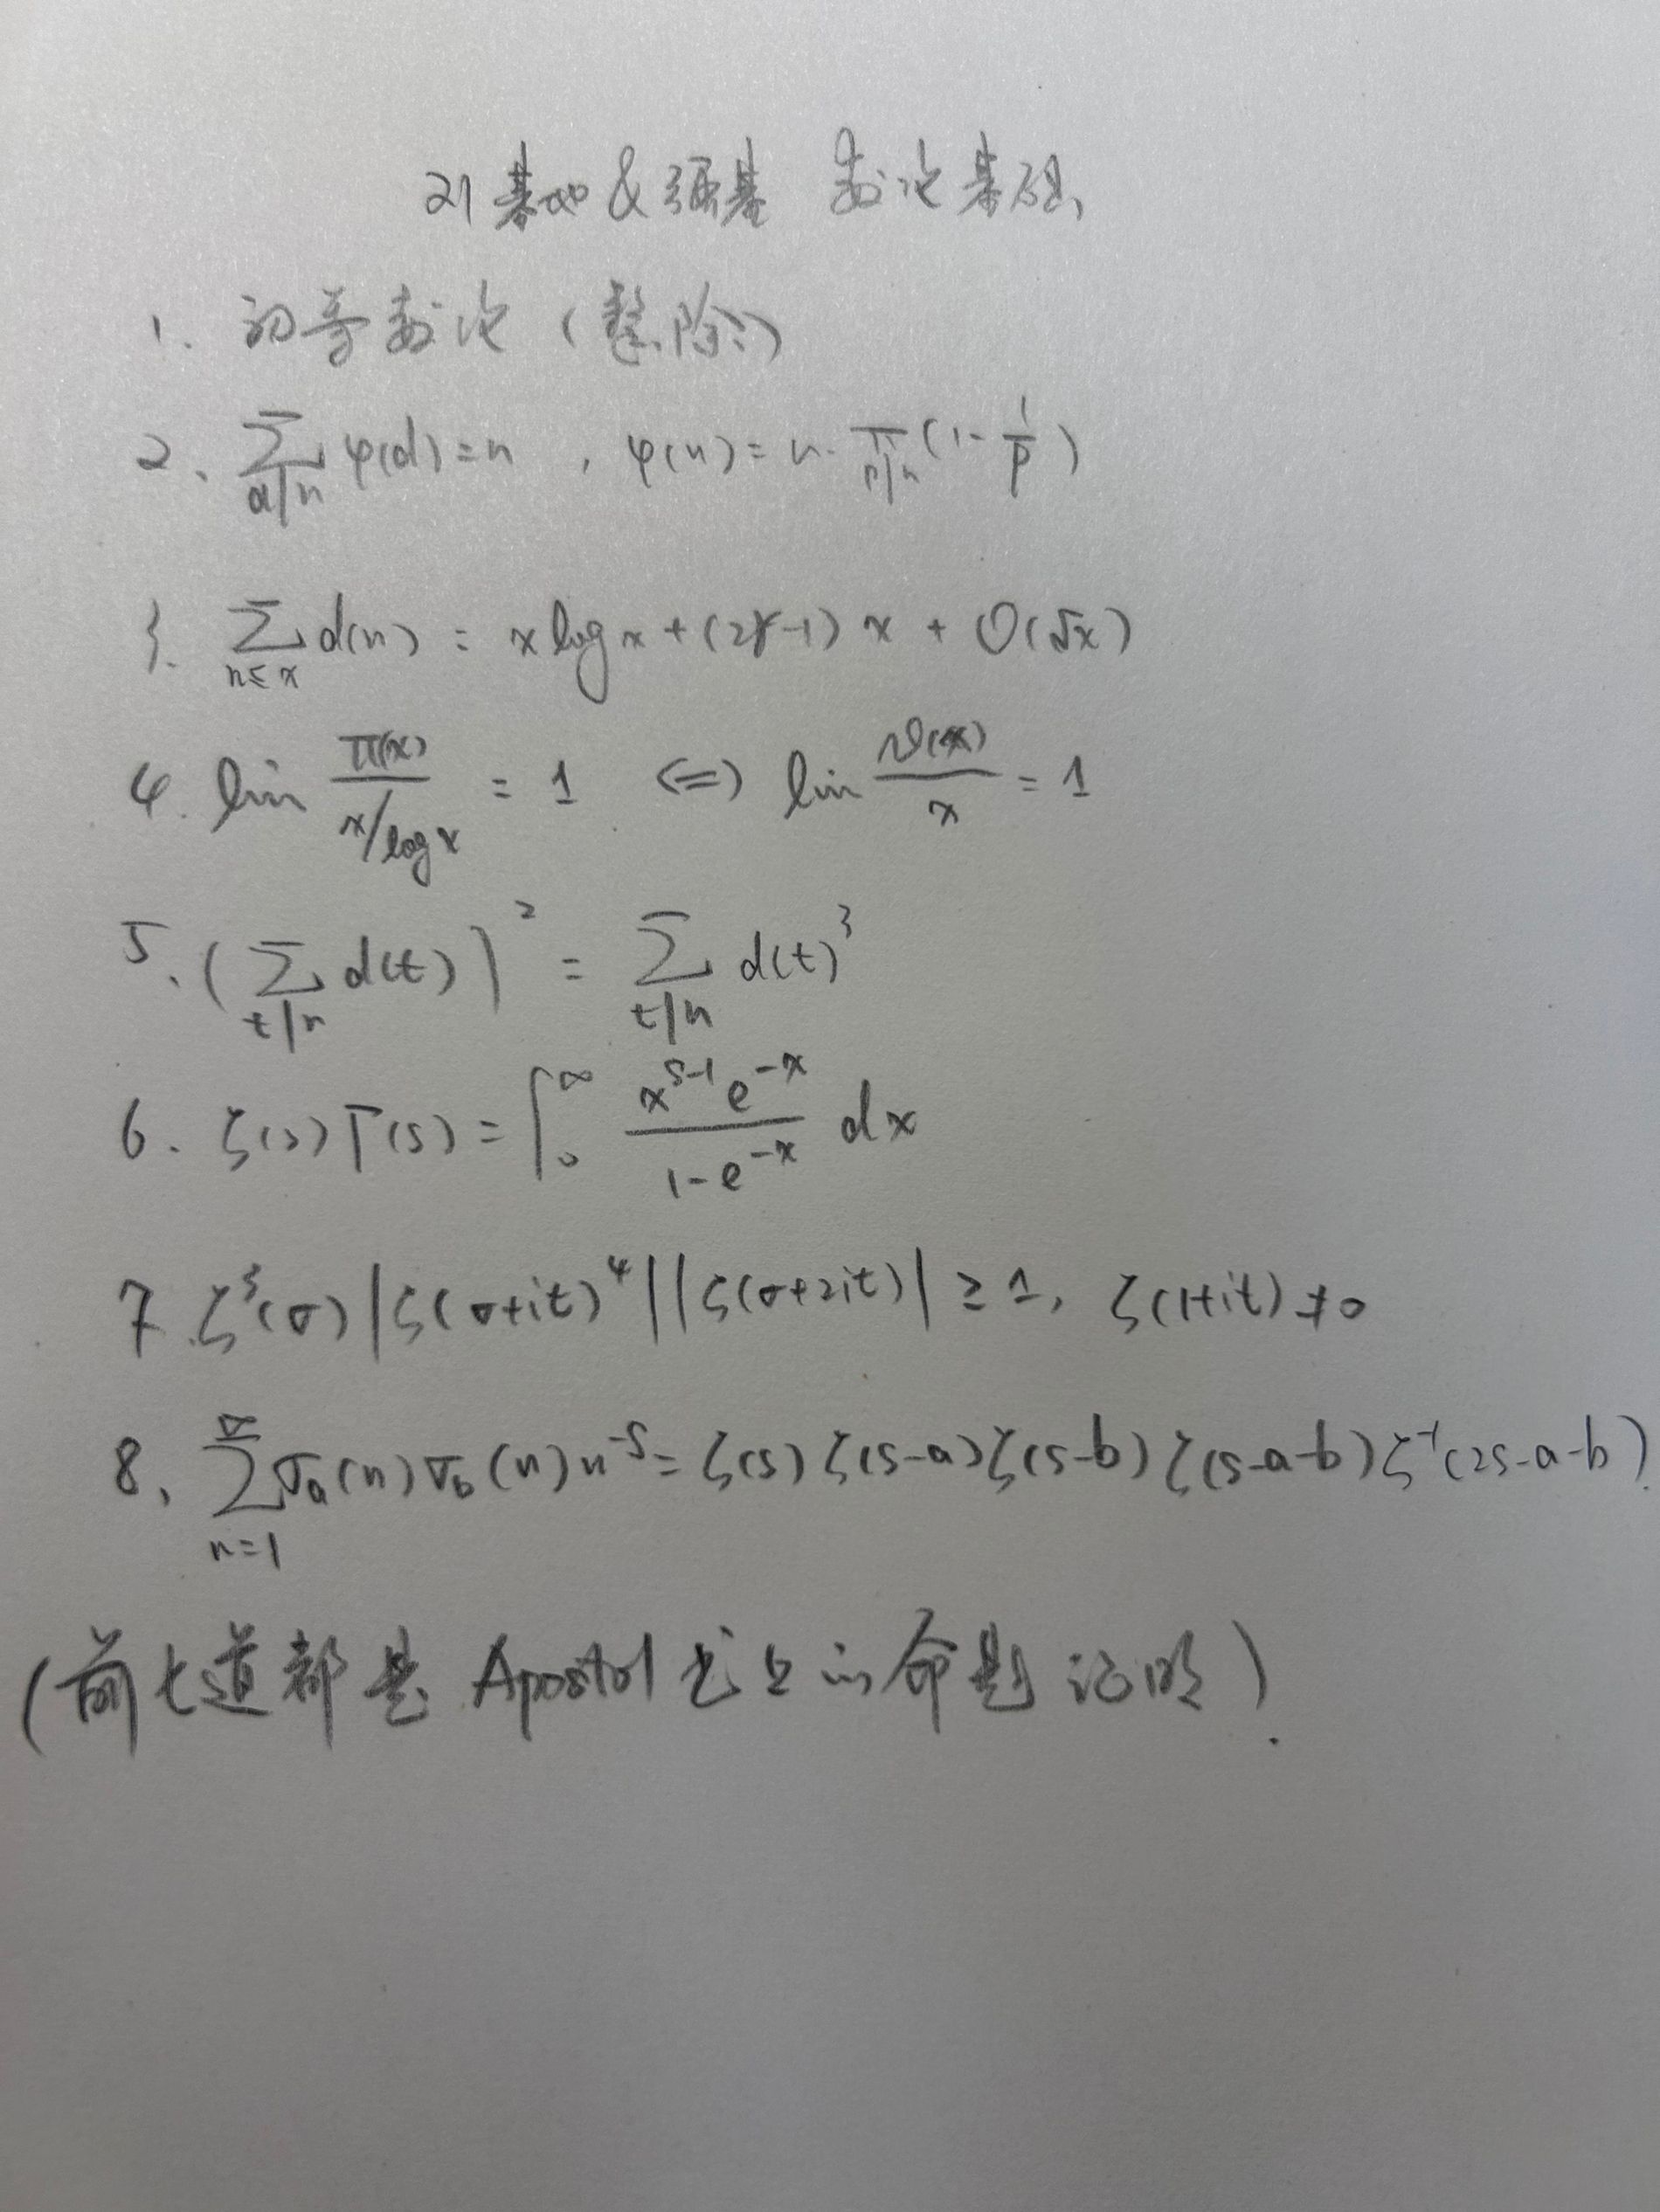 21 基∞ & 强基 数论基础
1. 初等数论 (整除)
2. ∑_{d|n} φ(d) = n , φ(n) = n · ∏_{p|n} (1 - 1/p)
3. ∑_{n≤x} d(n) = x log x + (2γ-1) x + O(√x)
4. lim π(x)/(x/log x) = 1 <=> lim ϑ(x)/x = 1
5. (∑_{t|n} d(t))² = ∑_{t|n} d(t)³
6. ζ(s) Γ(s) = ∫₀^∞ (x^{s-1} e^{-x})/(1-e^{-x}) dx
7. ζ³(σ) |ζ(σ+it)⁴| |ζ(σ+2it)| ≥ 1, ζ(1+it) ≠ 0
8. ∑_{n=1}^∞ σ_a(n) σ_b(n) n^{-s} = ζ(s) ζ(s-a) ζ(s-b) ζ(s-a-b) ζ^{-1}(2s-a-b).
(前七道都是 Apostol 书上的命题证明).